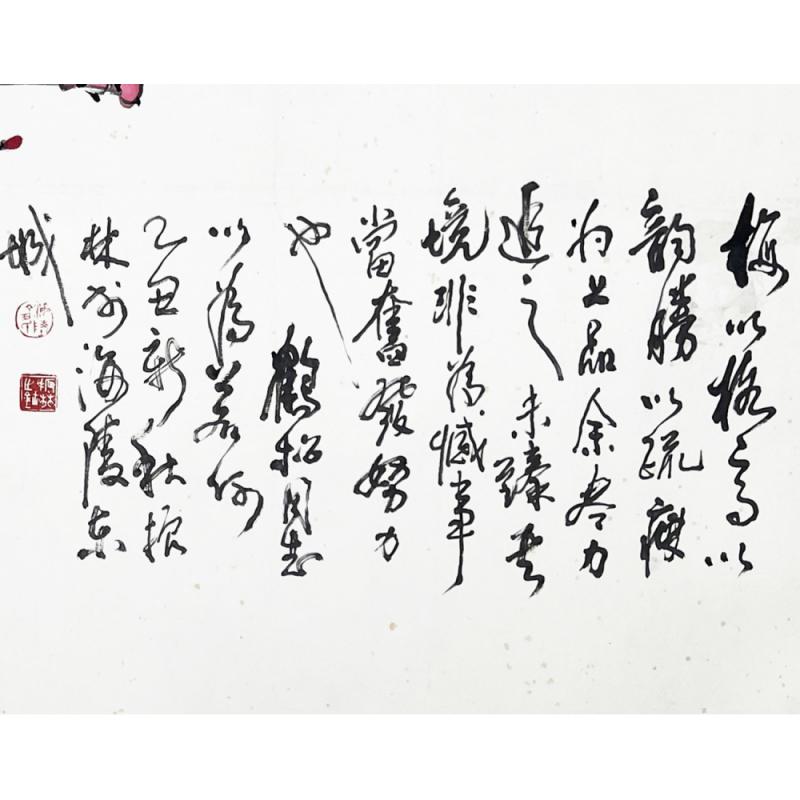 梅以格高以
韵勝以疏瘦
为上品余尽力
追之未臻其
境非為憾事
當奮發努力
也 鶴松同志
以為若何
乙丑新秋振
林於海陵东
城